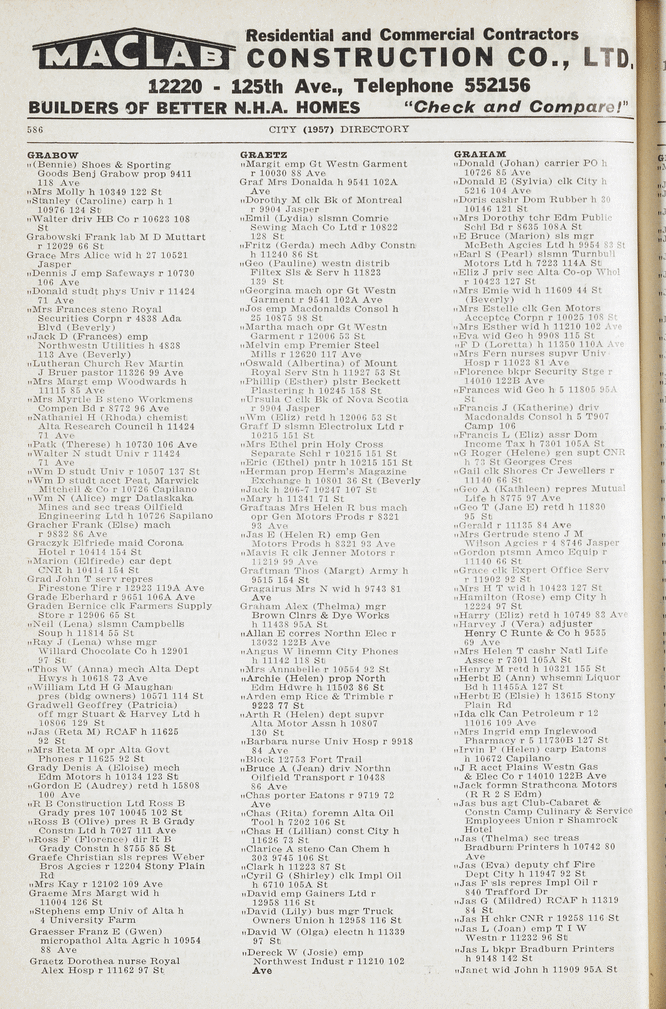 MACLAB
Residential and Commercial Contractors
CONSTRUCTION CO., LTD.
12220 - 125th Ave., Telephone 552156
BUILDERS OF BETTER N.H.A. HOMES "Check and Compare!"
586
CITY (1957) DIRECTORY
GRABOW
"(Bennie) Shoes & Sporting
Goods Benj Grabow prop 9411
118 Ave
"Mrs Molly h 10349 122 St
"Stanley (Caroline) carp h 1
10976 124 St
"Walter driv HB Co r 10623 108
St
Grabowski Frank lab M D Muttart
r 12029 66 St
Grace Mrs Alice wid h 27 10521
Jasper
"Dennis J emp Safeways r 10730
106 Ave
"Donald studt phys Univ r 11424
71 Ave
"Mrs Frances steno Royal
Securities Corpn r 4838 Ada
Blvd (Beverly)
"Jack D (Frances) emp
Northwestn Utilities h 4838
113 Ave (Beverly)
"Lutheran Church Rev Martin
J Bruer pastor 11326 99 Ave
"Mrs Margt emp Woodwards h
11115 85 Ave
"Mrs Myrtle B steno Workmens
Compen Bd r 8772 96 Ave
"Nathaniel H (Rhoda) chemist
Alta Research Council h 11424
71 Ave
"Patk (Therese) h 10730 106 Ave
"Walter N studt Univ r 11424
71 Ave
"Wm D studt Univ r 10507 137 St
"Wm D studt acct Peat, Marwick
Mitchell & Co r 10726 Capilano
"Wm N (Alice) mgr Dataskaka
Mines and sec treas Oilfield
Engineering Ltd h 10726 Sapilano
Gracher Frank (Else) mach
r 9832 86 Ave
Graczyk Elfriede maid Corona
Hotel r 10414 154 St
"Marion (Elfirede) car dept
CNR h 10414 154 St
Grad John T serv repres
Firestone Tire r 12923 119A Ave
Grade Eberhard r 9651 106A Ave
Graden Bernice clk Farmers Supply
Store r 12906 65 St
"Neil (Lena) slsmn Campbells
Soup h 11814 55 St
"Ray J (Lena) whse mgr
Willard Chocolate Co h 12901
97 St
"Thos W (Anna) mech Alta Dept
Hwys h 10618 73 Ave
"William Ltd H G Maughan
pres (bldg owners) 10571 114 St
Gradwell Geoffrey (Patricia)
off mgr Stuart & Harvey Ltd h
10806 129 St
"Jas (Reta M) RCAF h 11625
92 St
"Mrs Reta M opr Alta Govt
Phones r 11625 92 St
Grady Denis A (Eloise) mech
Edm Motors h 10134 123 St
"Gordon E (Audrey) retd h 15808
100 Ave
"R B Construction Ltd Ross B
Grady pres 107 10045 102 St
"Ross B (Olive) pres R B Grady
Constn Ltd h 7027 111 Ave
"Ross F (Florence) dir R B
Grady Constn h 8755 85 St
Graefe Christian sls repres Weber
Bros Agcies r 12204 Stony Plain
Rd
"Mrs Kay r 12102 109 Ave
Graeme Mrs Margt wid h
11004 126 St
"Stephens emp Univ of Alta h
4 University Farm
Graesser Franz E (Gwen)
micropathol Alta Agric h 10954
88 Ave
Graetz Dorothea nurse Royal
Alex Hosp r 11162 97 St
GRAETZ
"Margit emp Gt Westn Garment
r 10030 88 Ave
Graf Mrs Donalda h 9541 102A
Ave
"Dorothy M clk Bk of Montreal
r 9904 Jasper
"Emil (Lydia) slsmn Comrie
Sewing Mach Co Ltd r 10822
128 St
"Fritz (Gerda) mech Adby Constn
h 11240 86 St
"Geo (Pauline) westn distrib
Filtex Sls & Serv h 11823
139 St
"Georgina mach opr Gt Westn
Garment r 9541 102A Ave
"Jos emp Macdonalds Consol h
25 10875 98 St
"Martha mach opr Gt Westn
Garment r 12006 53 St
"Melvin emp Premier Steel
Mills r 12620 117 Ave
"Oswald (Albertina) of Mount
Royal Serv Stn h 11927 53 St
"Phillip (Esther) plstr Beckett
Plastering h 10245 158 St
"Ursula C clk Bk of Nova Scotia
r 9904 Jasper
"Wm (Eliz) retd h 12006 53 St
Graff D slsmn Electrolux Ltd r
10215 151 St
"Mrs Ethel prin Holy Cross
Separate Schl r 10215 151 St
"Eric (Ethel) pntr h 10215 151 St
"Herman prop Herm's Magazine
Exchange h 10801 36 St (Beverly
"Jack h 206-7 10247 107 St
"Mary h 11341 71 St
Graftaas Mrs Helen R bus mach
opr Gen Motors Prods r 8321
93 Ave
"Jas E (Helen R) emp Gen
Motors Prods h 8321 93 Ave
"Mavis R clk Jenner Motors r
11219 99 Ave
Graftman Thos (Margt) Army h
9515 154 St
Gragairus Mrs N wid h 9743 81
Ave
Graham Alex (Thelma) mgr
Brown Clnrs & Dye Works
h 11438 95A St
"Allan E corres Northn Elec r
13032 122B Ave
"Angus W linemn City Phones
h 11142 118 St
"Mrs Annabelle r 10554 92 St
"Archie (Helen) prop North
Edm Hdwre h 11503 86 St
"Arden emp Rice & Trimble r
9223 77 St
"Arth R (Helen) dept supvr
Alta Motor Assn h 10807
130 St
"Barbara nurse Univ Hosp r 9918
84 Ave
"Block 12753 Fort Trail
"Bruce A (Jean) driv Northn
Oilfield Transport r 10438
86 Ave
"Chas porter Eatons r 9719 72
Ave
"Chas (Rita) foremn Alta Oil
Tool h 7202 106 St
"Chas H (Lillian) const City h
11626 73 St
"Clarice A steno Can Chem h
303 9745 106 St
"Clark h 11223 87 St
"Cyril G (Shirley) clk Impl Oil
h 6710 105A St
"David emp Gainers Ltd r
12958 116 St
"David (Lily) bus mgr Truck
Owners Union h 12958 116 St
"David W (Olga) electn h 11339
97 St
"Dereck W (Josie) emp
Northwest Indust r 11210 102
Ave
GRAHAM
"Donald (Johan) carrier PO h
10726 85 Ave
"Donald E (Sylvia) clk City h
5216 104 Ave
"Doris cashr Dom Rubber h 30
10146 121 St
"Mrs Dorothy tchr Edm Public
Schl Bd r 8635 108A St
"E Bruce (Marion) sls mgr
McBeth Agcies Ltd h 9954 83 St
"Earl S (Pearl) slsmn Turnbull
Motors Ltd h 7223 114A St
"Eliz J priv sec Alta Co-op Whol
r 10423 127 St
"Mrs Emie wid h 11609 44 St
(Beverly)
"Mrs Estelle clk Gen Motors
Acceptce Corpn r 10025 108 St
"Mrs Esther wid h 11210 102 Ave
"Eva wid Geo h 9908 115 St
"F D (Loretta) h 11350 110A Ave
"Mrs Fern nurses supvr Univ
Hosp r 11023 81 Ave
"Florence bkpr Security Stge r
14010 122B Ave
"Frances wid Geo h 5 11805 95A
St
"Francis J (Katherine) driv
Macdonalds Consol h 5 T907
Camp 106
"Francis L (Eliz) assr Dom
Income Tax h 7301 105A St
"G Roger (Helene) gen supt CNR
h 73 St Georges Cres
"Gail clk Shores Cr Jewellers r
11140 66 St
"Geo A (Kathleen) repres Mutual
Life h 8775 97 Ave
"Geo T (Jane E) retd h 11830
95 St
"Gerald r 11135 84 Ave
"Mrs Gertrude steno J M
Wilson Agcies r 4 8746 Jasper
"Gordon ptsmn Amco Equip r
11140 66 St
"Grace clk Expert Office Serv
r 11902 92 St
"Mrs H T wid h 10423 127 St
"Hamilton (Rose) emp City h
12224 97 St
"Harry (Eliz) retd h 10749 83 Ave
"Harvey J (Vera) adjuster
Henry C Runte & Co h 9535
69 Ave
"Mrs Helen T cashr Natl Life
Assce r 7301 105A St
"Henry M retd h 10321 155 St
"Herbt E (Ann) whsemn Liquor
Bd h 11455A 127 St
"Herbt E (Elsie) h 13615 Stony
Plain Rd
"Ida clk Can Petroleum r 12
11016 109 Ave
"Mrs Ingrid emp Inglewood
Pharmacy r 5 11730B 127 St
"Irvin P (Helen) carp Eatons
h 10672 Capilano
"J R acct Plains Westn Gas
& Elec Co r 14010 122B Ave
"Jack formn Strathcona Motors
(R R 2 S Edm)
"Jas bus agt Club-Cabaret &
Constn Camp Culinary & Service
Employees Union r Shamrock
Hotel
"Jas (Thelma) sec treas
Bradburn Printers h 10742 80
Ave
"Jas (Eva) deputy chf Fire
Dept City h 11947 92 St
"Jas F sls repres Impl Oil r
840 Trafford Dr
"Jas G (Mildred) RCAF h 11319
84 St
"Jas H chkr CNR r 19258 116 St
"Jas L (Joan) emp T I W
Westn r 11232 96 St
"Jas L bkpr Bradburn Printers
h 9148 142 St
"Janet wid John h 11909 95A St